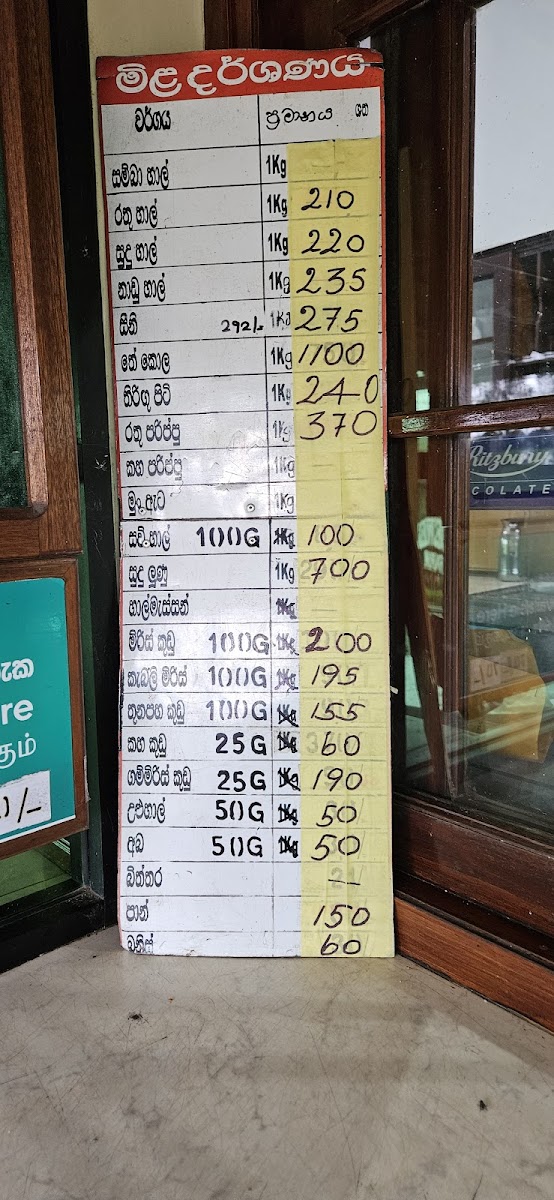 මිළ දර්ශණය
වර්ගය ප්‍රමානය ශත
සම්බා හාල් 1Kg
රතු හාල් 1Kg 210
සුදු හාල් 1Kg 220
නාඩු හාල් 1Kg 235
සීනි 292/- 1Kg 275
තේ කොල 1Kg 1100
තිරිඟු පිටි 1Kg 240
රතු පරිප්පු 1Kg 370
කහ පරිප්පු 1Kg
මුං ඇට 1Kg
සව් හාල් 100G 1Kg 100
සුදු ලූණු 1Kg 700
හාල්මැස්සන් 1Kg
මිරිස් කුඩු 100G 1Kg 200
කෑබලි මිරිස් 100G 1Kg 195
තුනපහ කුඩු 100G 1Kg 155
කහ කුඩු 25G 1Kg 60
ගම්මිරිස් කුඩු 25G 1Kg 190
උළුහාල් 50G 1Kg 50
අබ 50G 1Kg 50
බිත්තර –
පාන් 150
බනිස් 60
Ritzbury
COLATE
නැක
re
தம்
/-